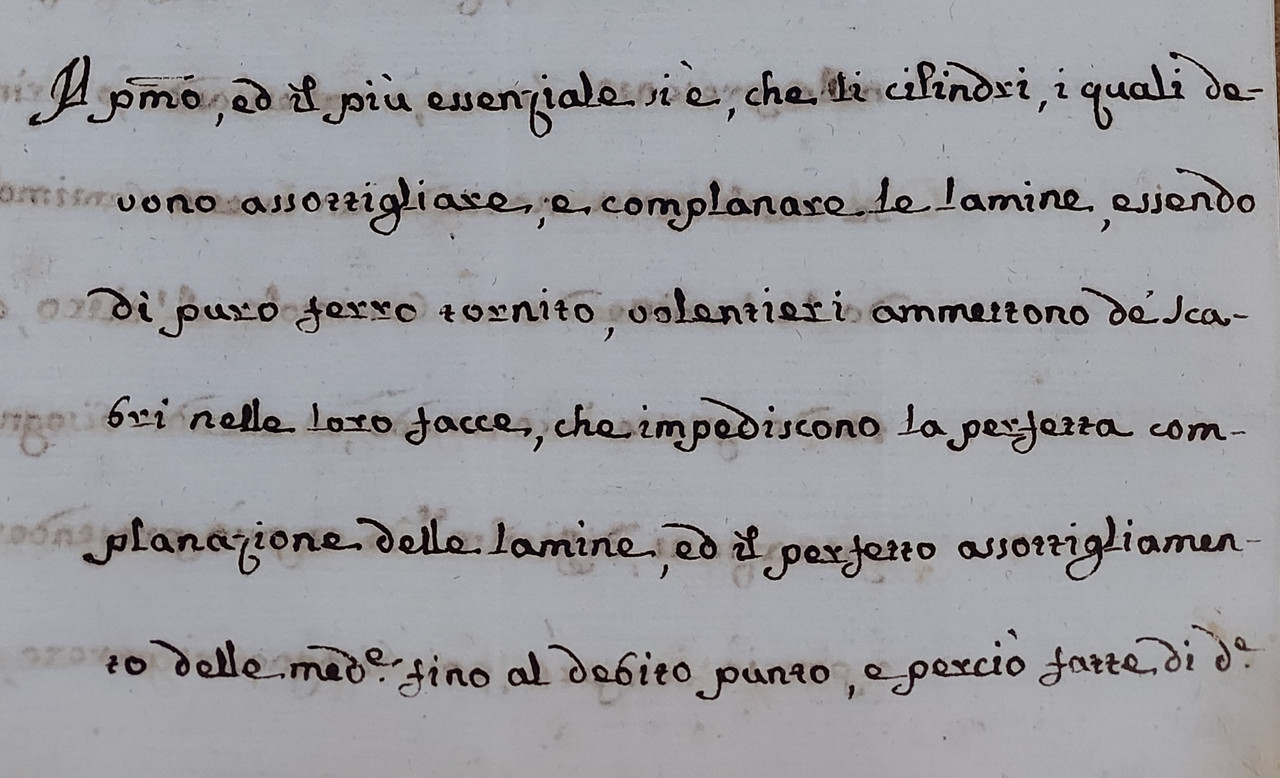 Il pmõ, ed il più essenziale si è, che li cilindri, i quali de-
vono assottigliare, e complanare le lamine, essendo
di puro ferro tornito, volentieri ammettono de' sca-
bri nelle loro facce, che impediscono la perfetta com-
planazione delle lamine, ed il perfetto assottigliamen-
to delle med.e fino al debito punto, e perciò fatte di d.e